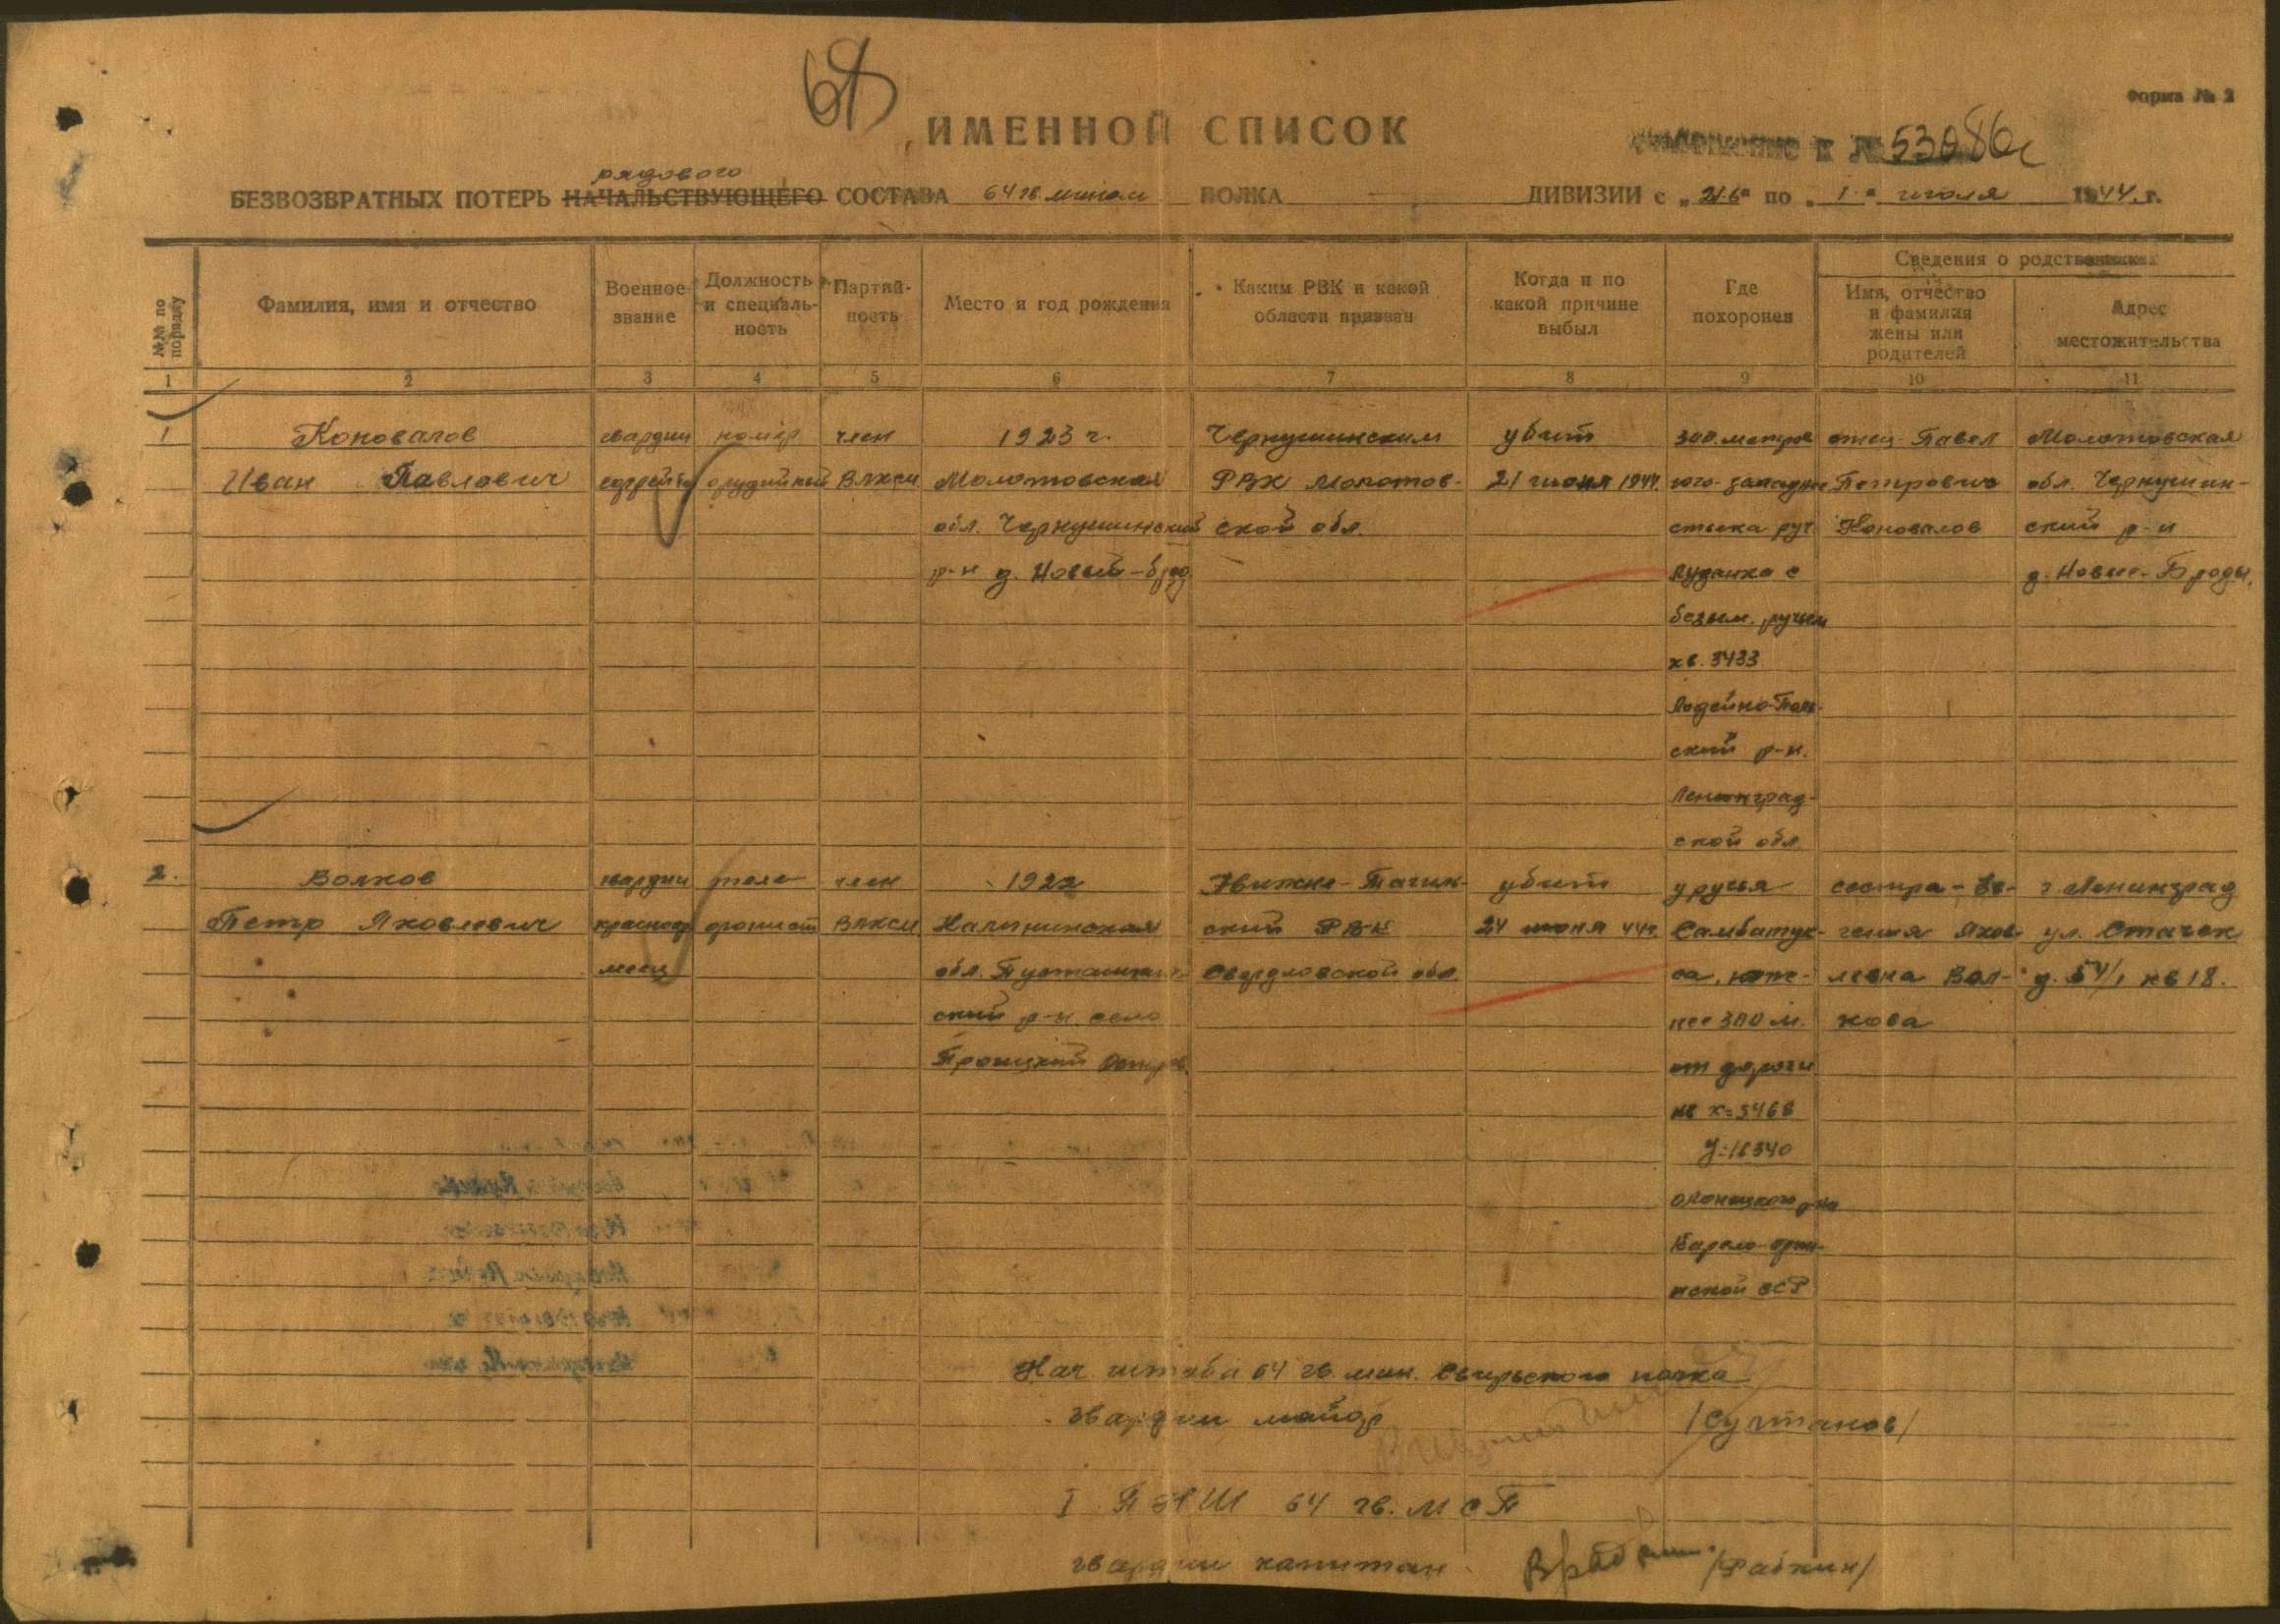 68
Форма № 2
ИМЕННОЙ СПИСОК
к № 53086с
рядового
БЕЗВОЗВРАТНЫХ ПОТЕРЬ НАЧАЛЬСТВУЮЩЕГО СОСТАВА 64 гв. мином ПОЛКА ДИВИЗИИ с „21.6" по „1" июля 1944 г.
№№ по порядку
Фамилия, имя и отчество
Военное звание
Должность и специальность
Партийность
Место и год рождения
Каким РВК и какой области призван
Когда и по какой причине выбыл
Где похоронен
Сведения о родственниках
Имя, отчество и фамилия жены или родителей
Адрес местожительства
1 2 3 4 5 6 7 8 9 10 11
1 Коновалов гвардии номер член 1923 г. Чернушинским убит 300 метров отец Павел Молотовская
Иван Павлович ефрейтор орудийный ВЛКСМ Молотовская РВК Молотов- 21 июня 1944 юго-западнее Петрович обл. Чернушин-
обл. Чернушинский ской обл. стыка руч Коновалов ский р-н
р-н д. Новый-брод с д. Новые-Броды.
безым. ручьем
кв. 3433
Лодейно-Поль-
ский р-н.
Ленинград-
ской обл
2. Волков гвардии теле- член 1922 Нижне-Тагиль- убит у ручья сестра - Ев- г. Ленинград
Петр Яковлевич красноар фонист ВЛКСМ Калининская ский РВК 24 июня 44г. Самбатук- гения Яков- ул. Стачек
меец обл. Свердловской обл. са, юж- левна Вол- д. 54/1 кв 18.
ский р-н село нее 300 м. кова
Троицкий Остров. от дороги
кв х=3468
у=18340
Олонецкого р-на
Карело-фин-
нской ССР
Нач штаба 64 гв. мин. Свирьского полка
гвардии майор /Султанов/
I ПНШ 64 гв. МсП
гвардии капитан /Рабкин/